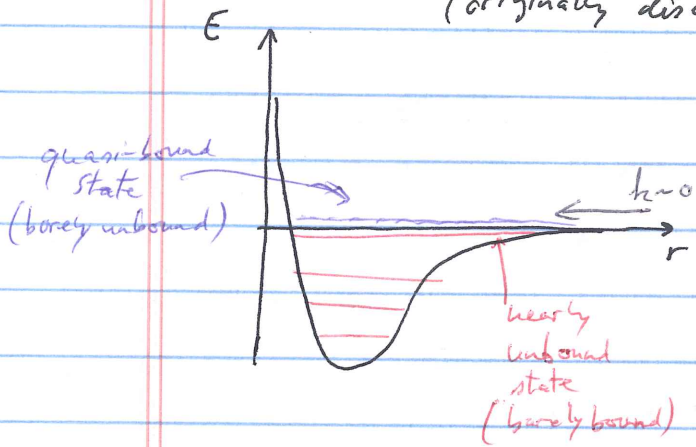 (originally disc
E
quasi-bound
state
(barely unbound)
k~0
r
nearly
unbound
state
(barely bound)